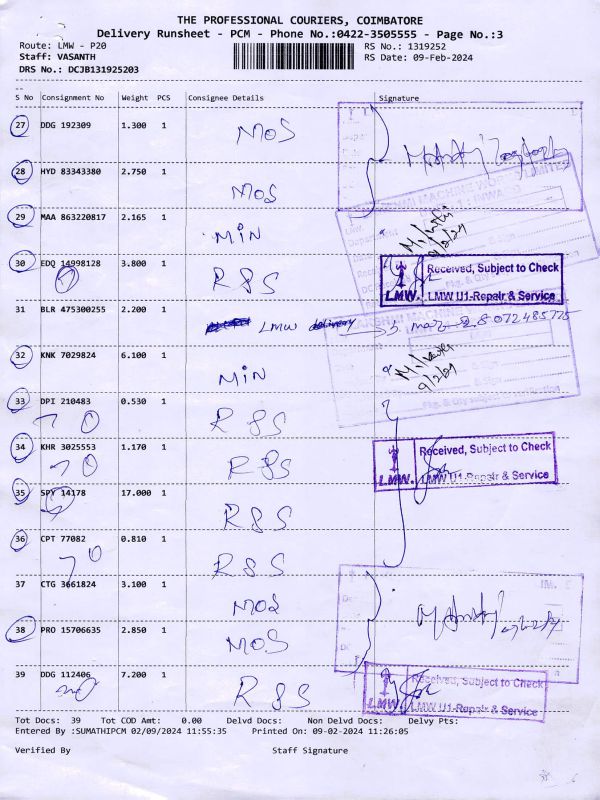 THE PROFESSIONAL COURIERS, COIMBATORE
Delivery Runsheet - PCM - Phone No.:0422-3505555 - Page No.:3
Route: LMW - P20 RS No.: 1319252
Staff: VASANTH RS Date: 09-Feb-2024
DRS No.: DCJB131925203
S No Consignment No Weight PCS Consignee Details Signature
27 DDG 192309 1.300 1 MOS
28 HYD 83343380 2.750 1 MOS
29 MAA 863220817 2.165 1 MIN
30 EDQ 14998128 3.800 1 R&S
Received, Subject to Check
LMW. LMW U1-Repair & Service
31 BLR 475300255 2.200 1 LMW delivery
32 KNK 7029824 6.100 1 MIN
9/2/24
33 DPI 210483 0.530 1 R&S
34 KHR 3025553 1.170 1 R&S
Received, Subject to Check
LMW. LMW U1-Repair & Service
35 SPY 14178 17.000 1 R&S
36 CPT 77082 0.810 1 R&S
37 CTG 3661824 3.100 1 MOS
38 PRO 15706635 2.850 1 MOS
39 DDG 112406 7.200 1 R&S
Received, Subject to Check
LMW. LMW U1-Repair & Service
Tot Docs: 39 Tot COD Amt: 0.00 Delvd Docs: Non Delvd Docs: Delvy Pts:
Entered By :SUMATHIPCM 02/09/2024 11:55:35 Printed On: 09-02-2024 11:26:05
Verified By Staff Signature